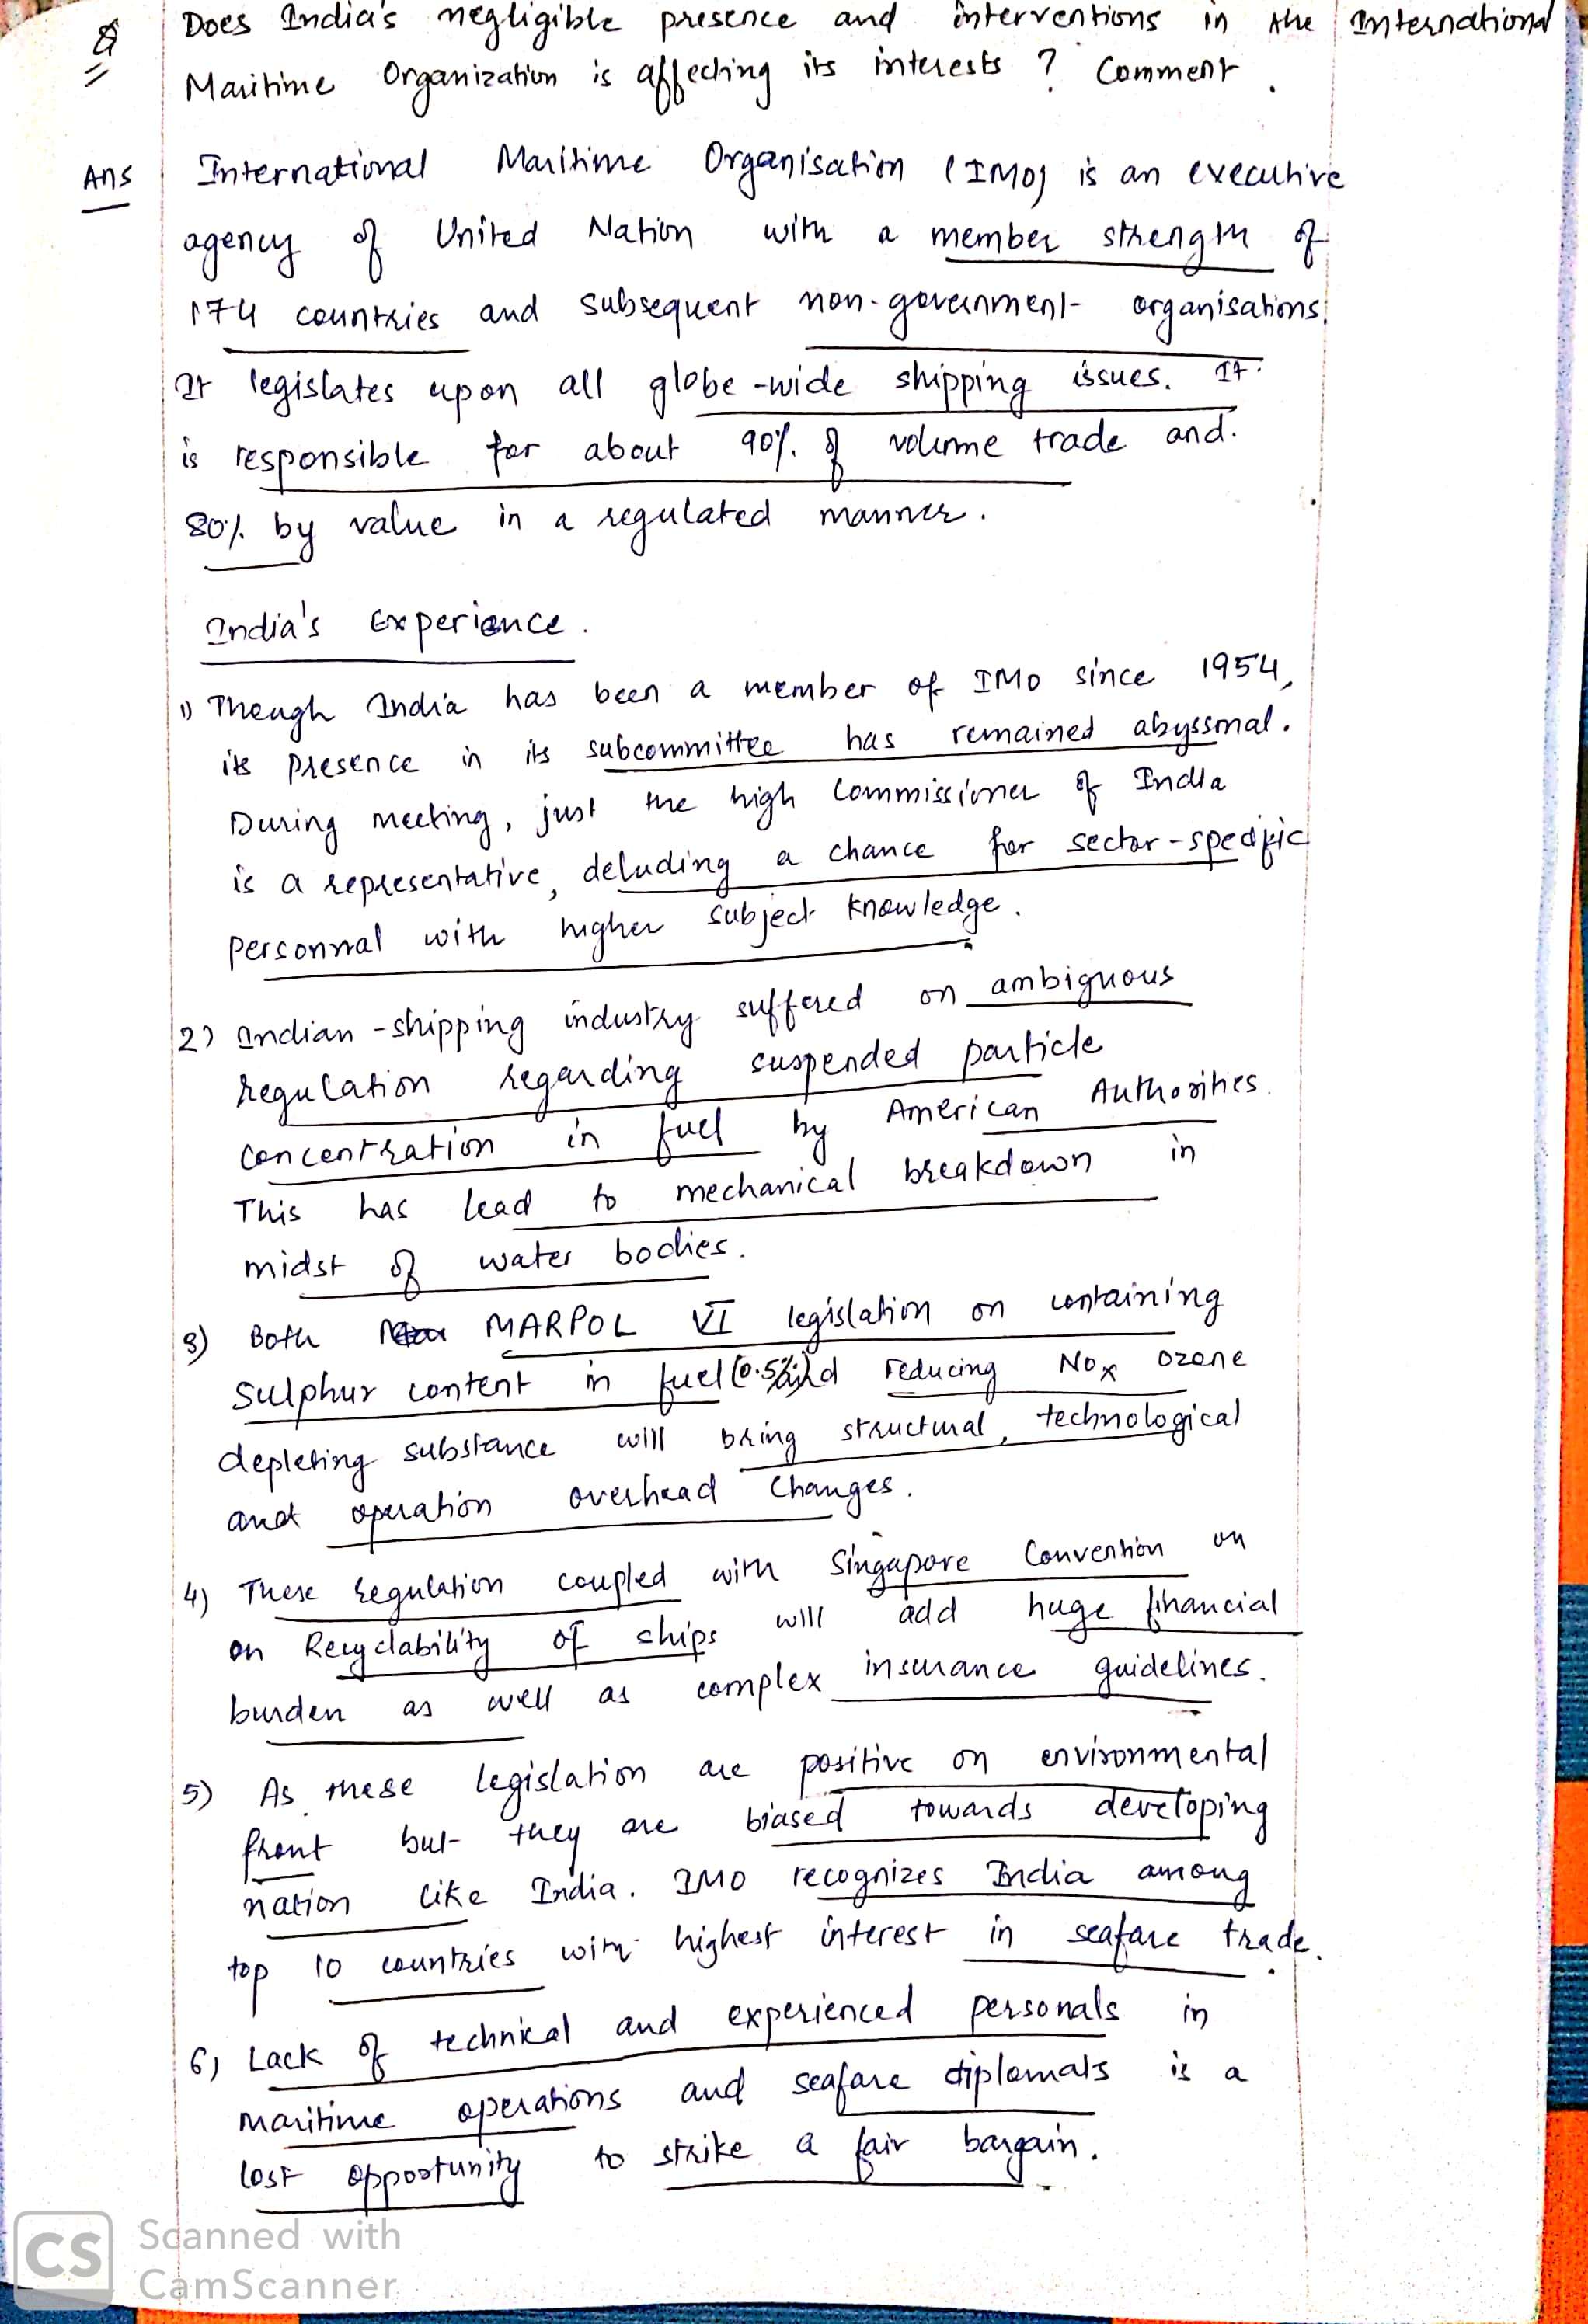 Q Does India's negligible presence and interventions in the International
Maritime Organization is affecting its interests ? Comment .
Ans International Maritime Organisation (IMO) is an executive
agency of United Nation with a member strength of
174 countries and subsequent non-government organisations.
It legislates upon all globe-wide shipping issues. It
is responsible for about 90% of volume trade and
80% by value in a regulated manner.
India's Experience.
1) Though India has been a member of IMO since 1954,
its presence in its subcommittee has remained abyssmal.
During meeting, just the high Commissioner of India
is a representative, deluding a chance for sector-specific
personnal with higher subject knowledge.
2) Indian-shipping industry suffered on ambiguous
regulation regarding suspended particle
concentration in fuel by American Authorities.
This has lead to mechanical breakdown in
midst of water bodies.
3) Both MARPOL VI legislation on containing
sulphur content in fuel (0.5%) and reducing NOx ozone
depleting substance will bring structural, technological
and operation overhead changes.
4) These regulation coupled with Singapore Convention on
on Recyclability of ships will add huge financial
burden as well as complex insurance guidelines.
5) As these legislation are positive on environmental
front but they are biased towards developing
nation like India. IMO recognizes India among
top 10 countries with highest interest in seafare trade.
6) Lack of technical and experienced personals in
maritime operations and seafare diplomats is a
lost opportunity to strike a fair bargain.
CS Scanned with
CamScanner